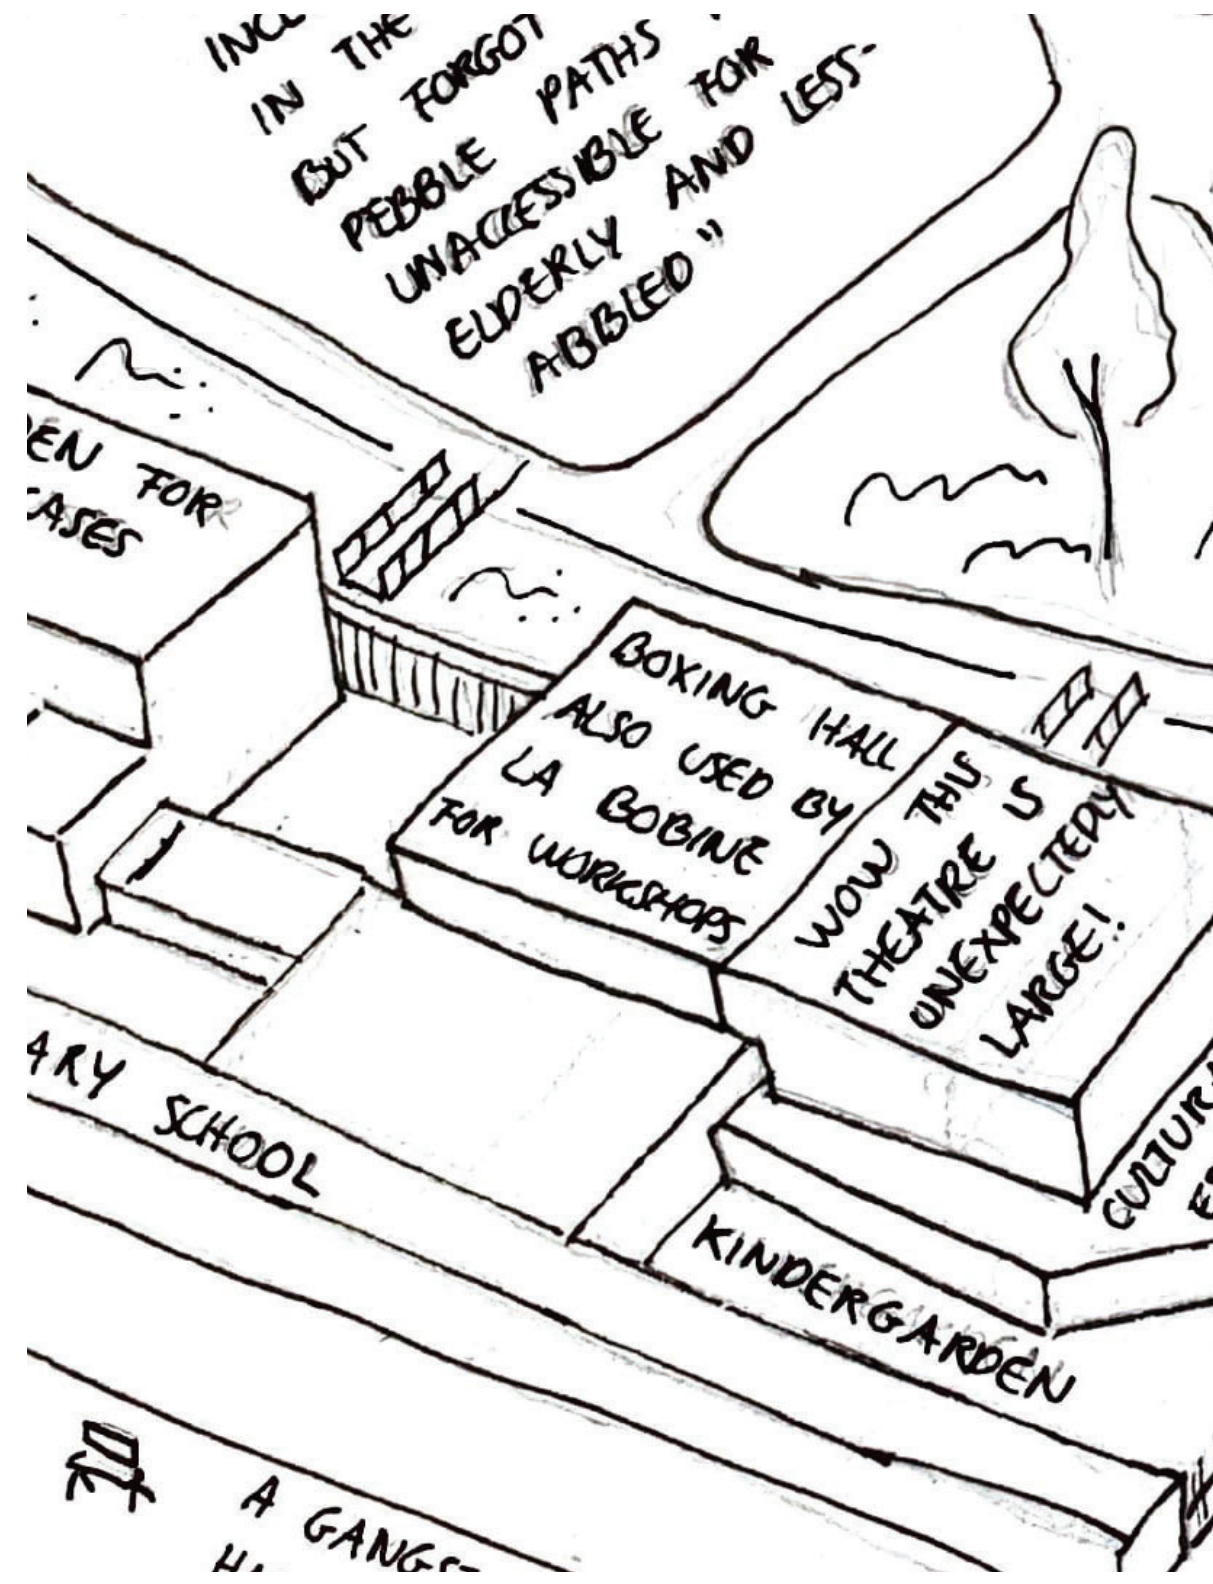 IN THE
BUT FORGOT
PEBBLE PATHS
UNACCESSIBLE FOR
ELDERLY AND LESS-
ABBLED"
FOR
BOXING HALL
ALSO USED BY
LA BOBINE
FOR WORKSHOPS
WOW THIS
THEATRE IS
UNEXPECTEDLY
LARGE!!
SCHOOL
KINDERGARDEN
A